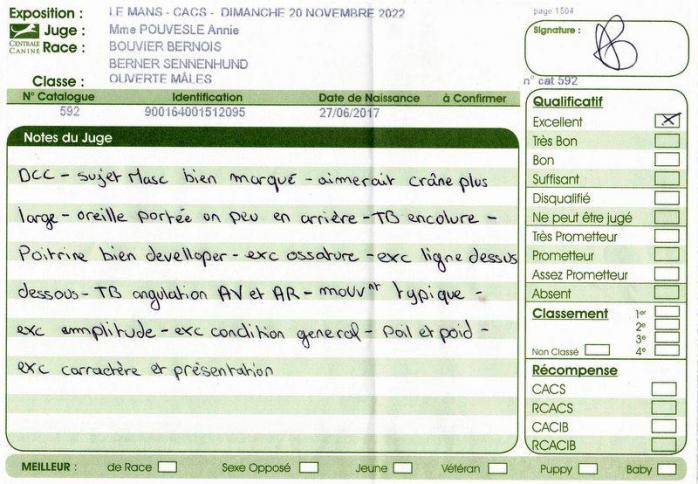 Exposition : LE MANS - CACS - DIMANCHE 20 NOVEMBRE 2022
page 1504
Juge : Mme POUVESLE Annie
Signature :
CENTRALE CANINE
Race : BOUVIER BERNOIS
BERNER SENNENHUND
Classe : OUVERTE MÂLES
n° cat 592
N° Catalogue Identification Date de Naissance à Confirmer
592 900164001512095 27/06/2017
Notes du Juge
DCC - sujet Masc bien marqué - aimerait crâne plus
large - oreille portée un peu en arrière - TB encolure -
Poitrine bien develloper - exc ossature - exc ligne dessus
dessous - TB angulation AV et AR - mouvnt typique -
exc emmplitude - exc condition general - Poil et poid -
exc carractère et présentation
Qualificatif
Excellent X
Très Bon
Bon
Suffisant
Disqualifié
Ne peut être jugé
Très Prometteur
Prometteur
Assez Prometteur
Absent
Classement 1er
2e
3e
Non Classé 4e
Récompense
CACS
RCACS
CACIB
RCACIB
MEILLEUR : de Race Sexe Opposé Jeune Vétéran Puppy Baby